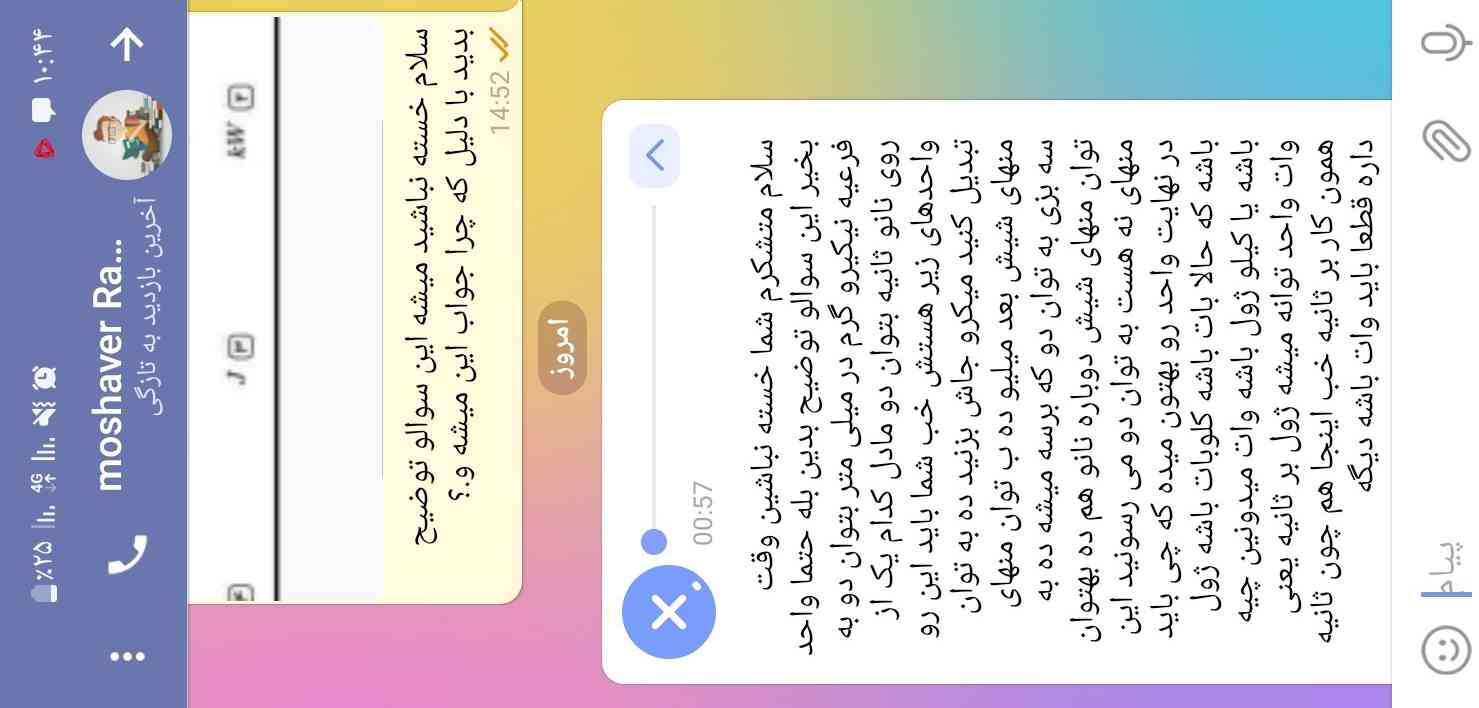 ۱۰:۴۴
4G
٪۲۵
moshaver Ra...
آخرین بازدید به تازگی
kW ۲
J ۳
سلام خسته نباشید میشه این سوالو توضیح
بدید با دلیل که چرا جواب این میشه و.؟
14:52
امروز
00:57
سلام متشکرم شما خسته نباشین وقت
بخیر این سوالو توضیح بدین بله حتما واحد
فرعیه نیکیرو گرم در میلی متر بتوان دو به
روی نانو ثانیه بتوان دو مادل کدام یک از
واحدهای زیر هستش خب شما باید این رو
تبدیل کنید میکرو جاش بزنید ده به توان
منهای شیش بعد میلیو ده ب توان منهای
سه بزی به توان دو که برسه میشه ده به
توان منهای شیش دوباره نانو هم ده بهتوان
منهای نه هست به توان دو می رسونید این
در نهایت واحد رو بهتون میده که چی باید
باشه که حالا بات باشه کلوبات باشه ژول
باشه یا کیلو ژول باشه وات میدونین چیه
وات واحد توانه میشه ژول بر ثانیه یعنی
همون کار بر ثانیه خب اینجا هم چون ثانیه
داره قطعا باید وات باشه دیگه
پیام